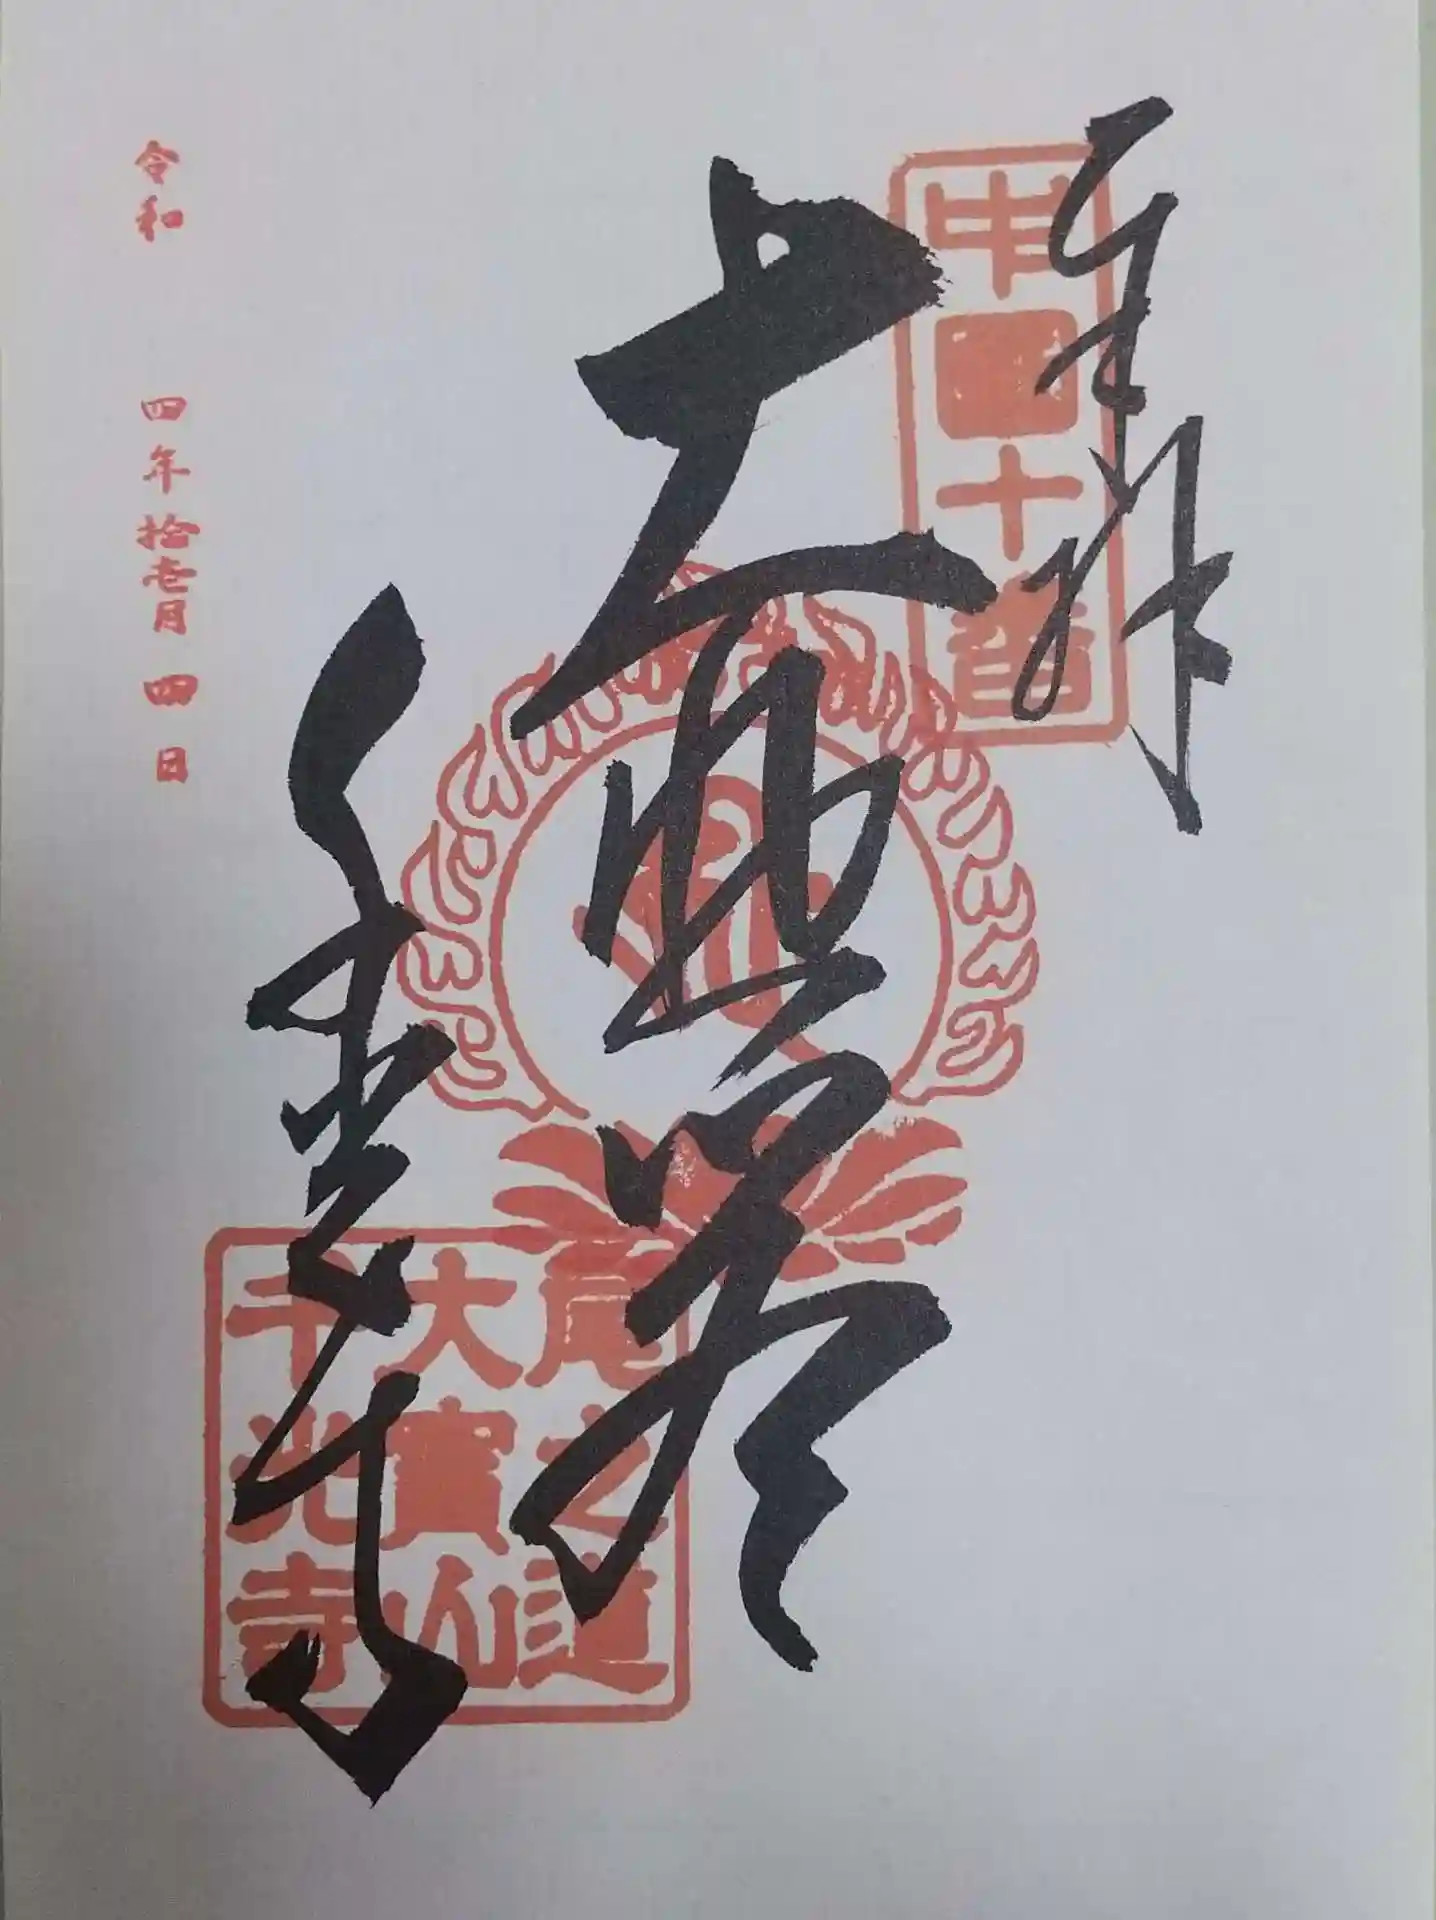 奉拝
中国十番
大悲殿
千光寺
尾之道
大寶山
千光寺
令和 四年 拾壱月 四日